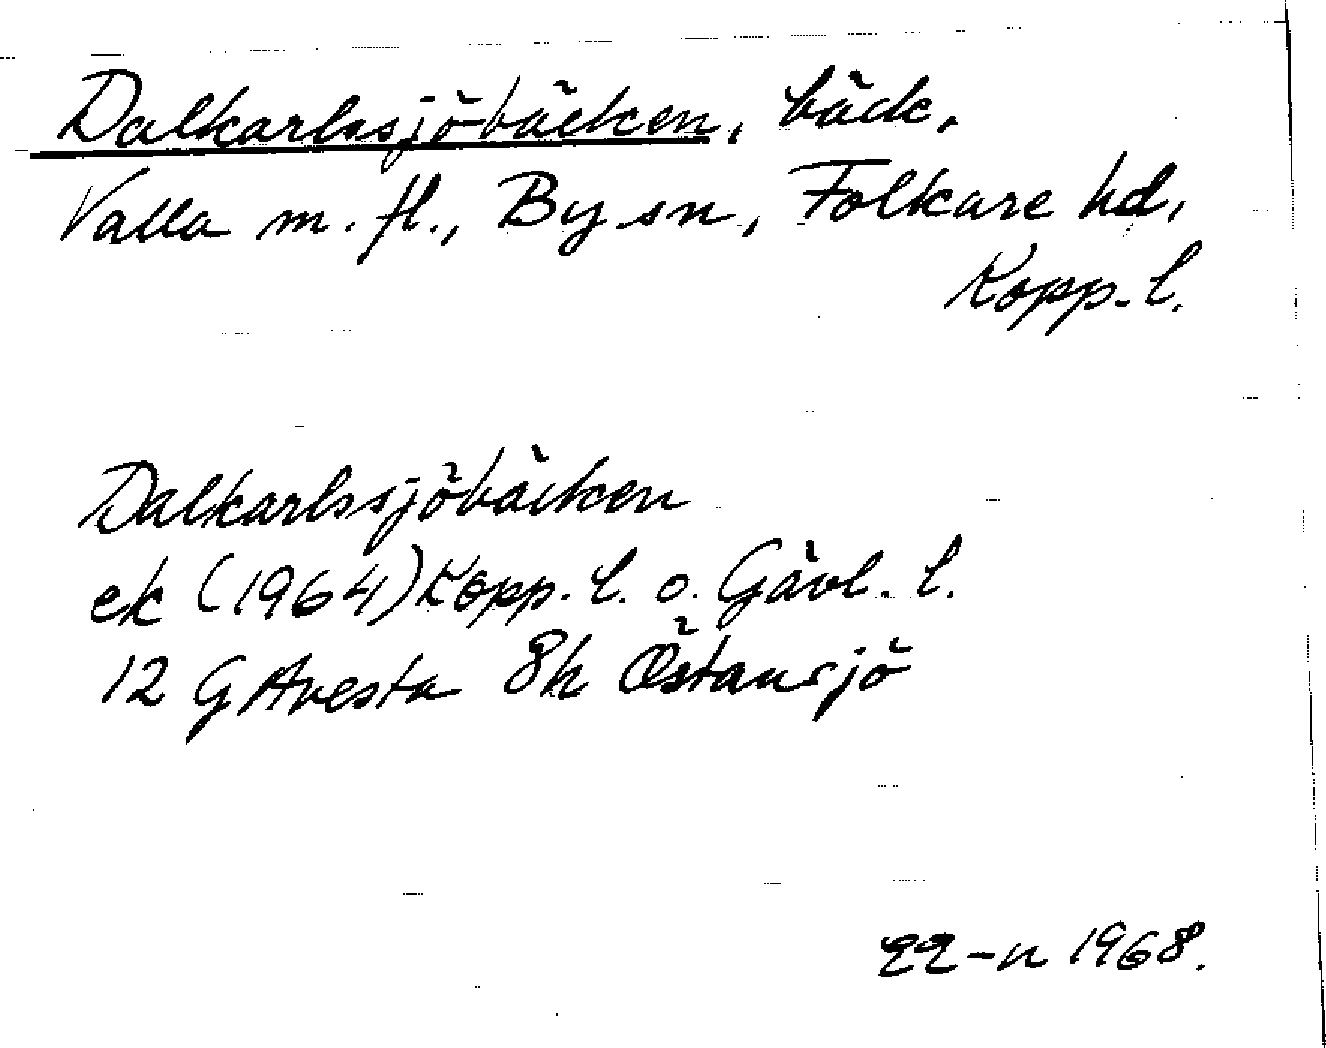 Dalkarlssjöbäcken, bäck,
Valla m. fl., By sn, Folkare hd,
Kopp. l.
Dalkarlssjöbäcken
ek (1964) Kopp. l. o. Gävl. l.
12 G Avesta 8h Östansjö
1968.